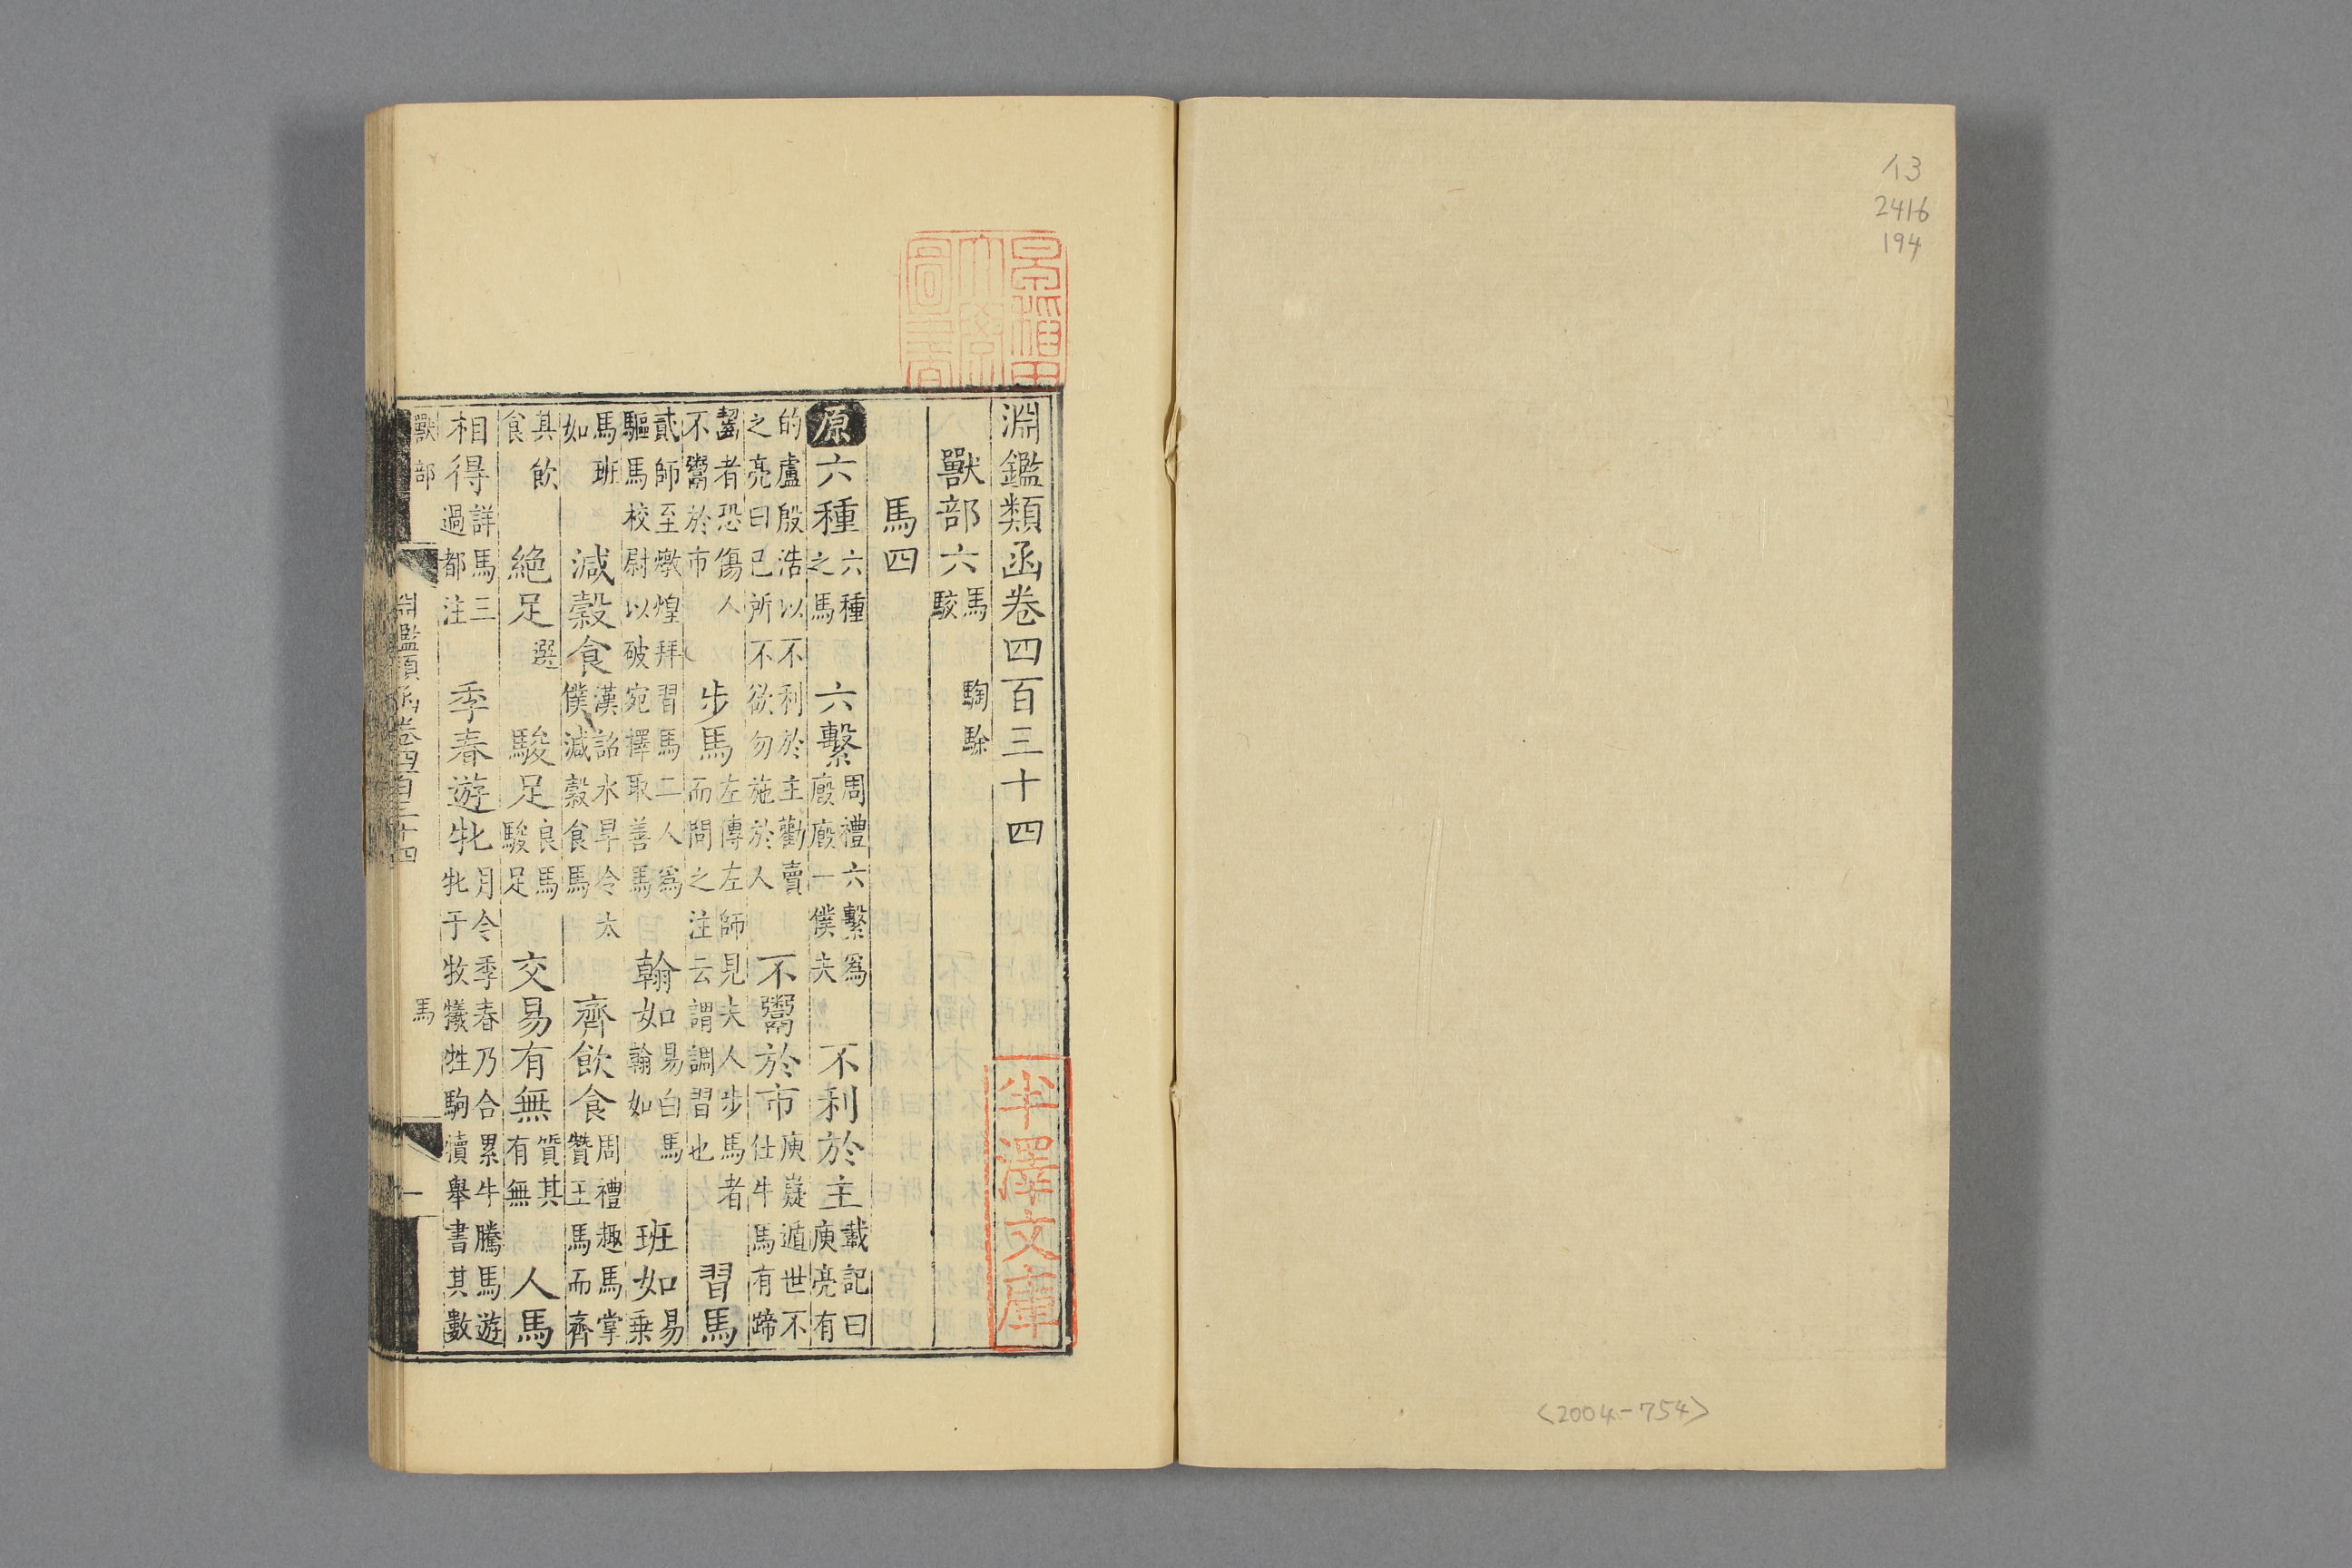 イ3
2416
194
<2004-754>
早稲田
大學
圖書
淵鑑類函卷四百三十四
獸部六 馬 騊駼 駮
馬四
原 六種 六種之馬 六繫 周禮六繫爲廄廄一僕夫 不利於主 載記曰庾亮有
的盧殷浩以不利於主勸賣之亮曰已所不欲勿施於人 不鬻於市 庾嶷遁世不仕牛馬有蹄
齧者恐傷人不鬻於市 步馬 左傳左師見夫人步馬者而問之注云謂調習也 習馬
貳師至燉煌拜習馬二人爲驅馬校尉以破宛擇取善馬 翰如 易白馬翰如 班如 易乗
馬班如 減穀食 漢詔水旱令太僕減穀食馬 齊飲食 周禮趣馬掌贊王馬而齊
其飲食 絶足 選 駿足 良馬駿足 交易有無 質其有無 人馬
相得 詳馬三過都注 季春遊牝 月令季春乃合累牛騰馬遊牝于牧犧牲駒犢舉書其數
獸部 淵鑑類函卷四百三十四 馬 一
半澤文庫